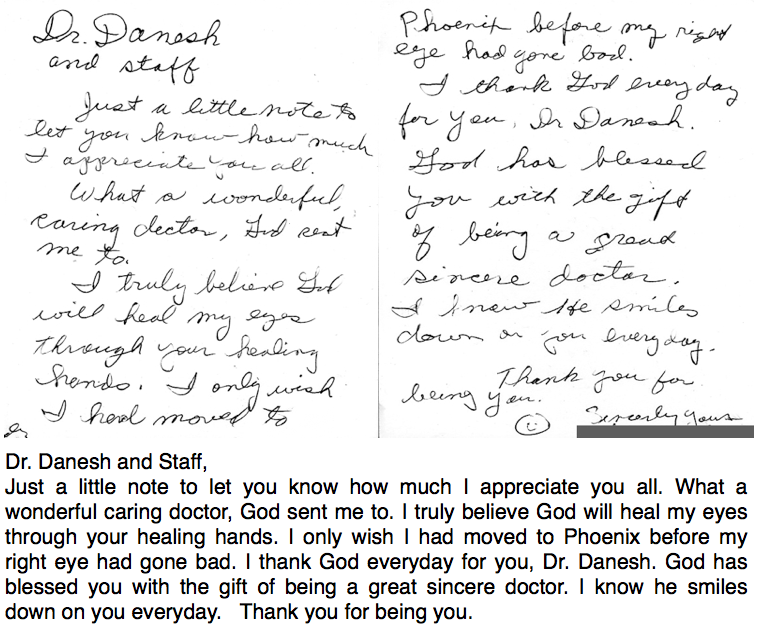 Dr. Danesh
and staff
Just a little note to
let you know how much
I appreciate you all.
What a wonderful,
caring doctor, God sent
me to.
I truly believe God
will heal my eyes
through your healing
hands. I only wish
I had moved to
Phoenix before my right
eye had gone bad.
I thank God everyday
for you, Dr Danesh.
God has blessed
you with the gift
of being a great
sincere doctor.
I know He smiles
down on you everyday.
Thank you for
being you.
Sincerly yours
Dr. Danesh and Staff,
Just a little note to let you know how much I appreciate you all. What a
wonderful caring doctor, God sent me to. I truly believe God will heal my eyes
through your healing hands. I only wish I had moved to Phoenix before my
right eye had gone bad. I thank God everyday for you, Dr. Danesh. God has
blessed you with the gift of being a great sincere doctor. I know he smiles
down on you everyday. Thank you for being you.